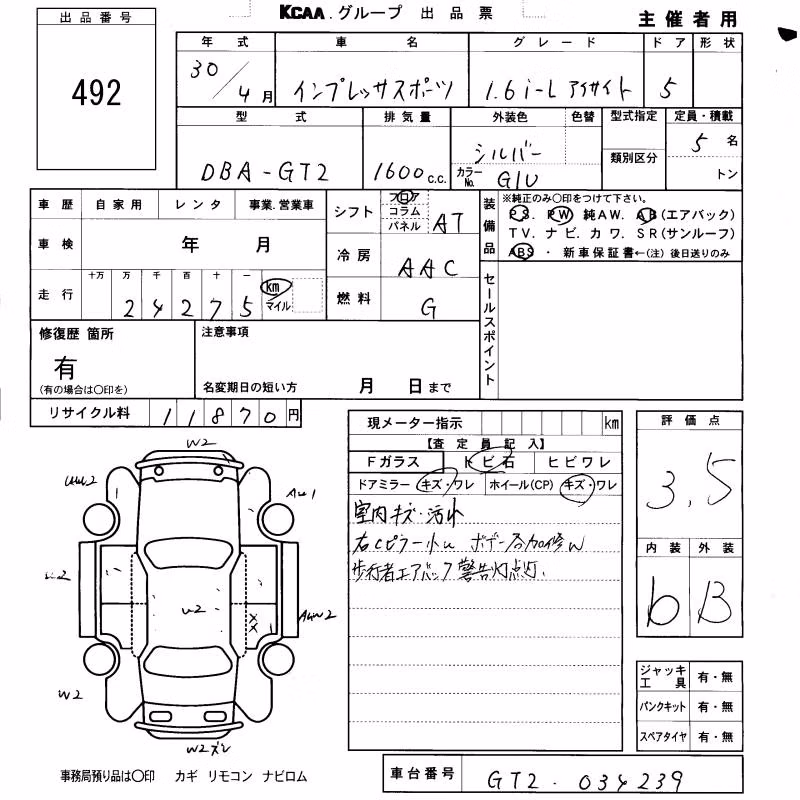 KCAA.グループ 出品票
主催者用
出品番号
492
年式 車名 グレード ドア 形状
30/4月 インプレッサスポーツ 1.6i-L アイサイト 5
型式 排気量 外装色 色替 型式指定 定員・積載
DBA-GT2 1600c.c. シルバー 5名
カラーNo. G1U 類別区分 トン
車歴 自家用 レンタ 事業.営業車
車検 年 月
走行 十万 万 千 百 十 一
24275 km マイル
シフト フロア コラム パネル AT
冷房 AAC
燃料 G
装備品
※純正のみ〇印をつけて下さい。
PS. PW 純AW. AB(エアバック)
TV. ナビ. カワ. SR(サンルーフ)
ABS・新車保証書←(注) 後日送りのみ
セールスポイント
修復歴 箇所
有
(有の場合は〇印を)
注意事項
名変期日の短い方 月 日まで
リサイクル料 11870円
現メーター指示 km
【査定員記入】
Fガラス トビ石 ヒビワレ
ドアミラー キズ・ワレ ホイール(CP) キズ・ワレ
室内キズ・汚れ
歩行者エアバック警告灯点灯.
評価点
3.5
内装 外装
b B
W2
A1
W2
W2
ジャッキ工具 有・無
パンクキット 有・無
スペアタイヤ 有・無
事務局預り品は〇印 カギ リモコン ナビロム
車台番号 GT2-034239